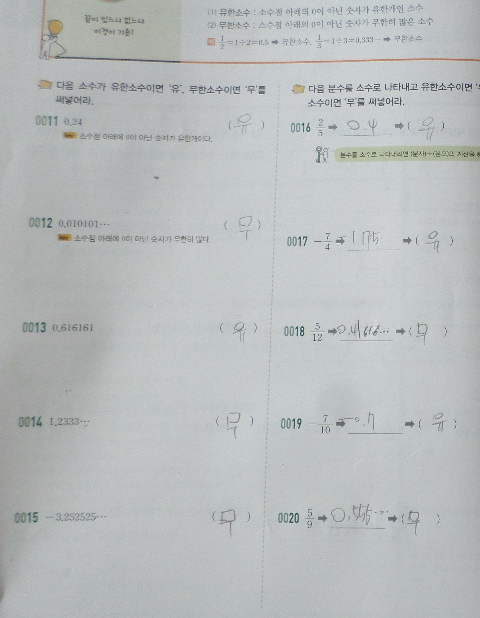 끝이 있느냐 없느냐
이것이 기준!
(1) 유한소수 : 소수점 아래의 0이 아닌 숫자가 유한개인 소수
(2) 무한소수 : 소수점 아래의 0이 아닌 숫자가 무한히 많은 소수
1/2=1÷2=0.5 ➡ 유한소수, 1/3=1÷3=0.333⋯ ➡ 무한소수
다음 소수가 유한소수이면 '유', 무한소수이면 '무'를
써넣어라.
0011 0.24 ( 유 )
소수점 아래에 0이 아닌 숫자가 유한개이다.
0012 0.010101⋯ ( 무 )
소수점 아래에 0이 아닌 숫자가 무한히 많다.
0013 0.616161 ( 유 )
0014 1.2333⋯ ( 무 )
0015 −3.252525⋯ ( 무 )
다음 분수를 소수로 나타내고 유한소수이면
소수이면 '무'를 써넣어라.
0016 ➡ 0.4 ➡ ( 유 )
분수를 소수로 나타내려면 (분자)÷(분모)의
0017 −7/4 ➡ ➡ ( 유 )
0018 5/12 ➡ 0.41666⋯ ➡ ( 무 )
0019 7/10 ➡ −0.7 ➡ ( 유 )
0020 5/9 ➡ 0.555⋯ ➡ ( 무 )